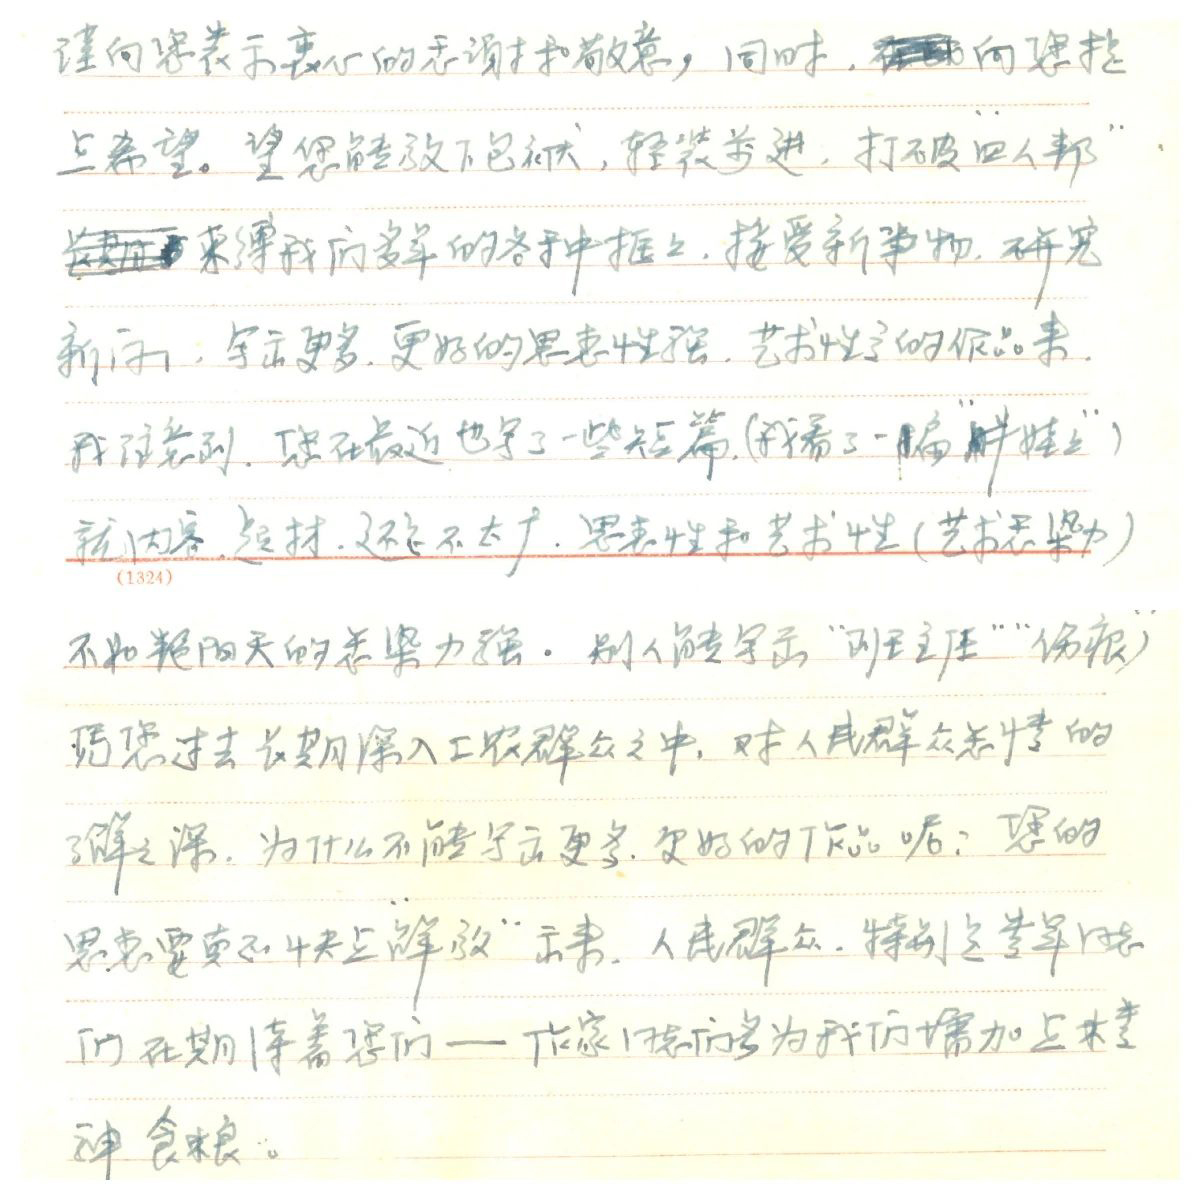 谨向您表示衷心的感谢和敬意，同时，向您提
点希望。望您能放下包袱，轻装前进，打破“四人邦”
束缚我们多年的各种框子，接受新事物，研究
新问，写出更多、更好的思想性强、艺术性高的作品来。
我注意到，您在最近也写了一些短篇，(我看了一篇“娃子”)
就内容、题材，还不太广，思想性和艺术性(艺术感染力)
(1324)
不如艳阳天的感染力强。别人能写出“班主任”“伤痕”，
您过去长期深入工农群众之中，对人民群众感情的
了解之深，为什么不能写出更多、更好的作品呢？您的
思想要更快点“解放”出来，人民群众，特别是青年同志
们在期待着您们——作家同志们多为我们增加点精
神食粮。